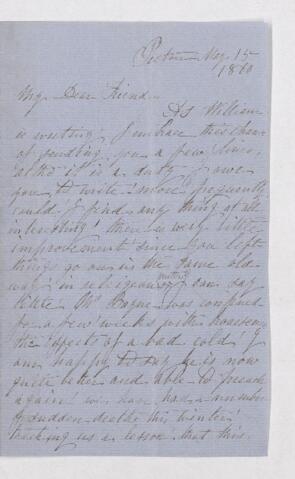 Pictou May 15
1860
My Dear Friend
As William
is writing I embrace this chance
of sending you a few lines
altho it is a duty I owe
you to write more frequently
could I find any thing at all
interesting there is very little
improvement since you left
things go on in the same old
way in religious matters I can say
little Mr Bayne was confined
for a few weeks with hoarseness
the effects of a bad cold I
am happy to say he is now
quite better and able to preach
again we have had a number
of sudden deaths this winter
teaching us a lesson that this